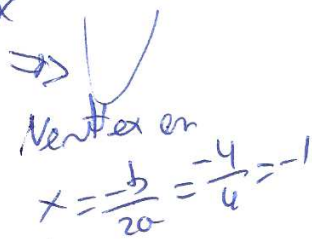 ⇒
Vertex en
x = -b/2a = -4/4 = -1